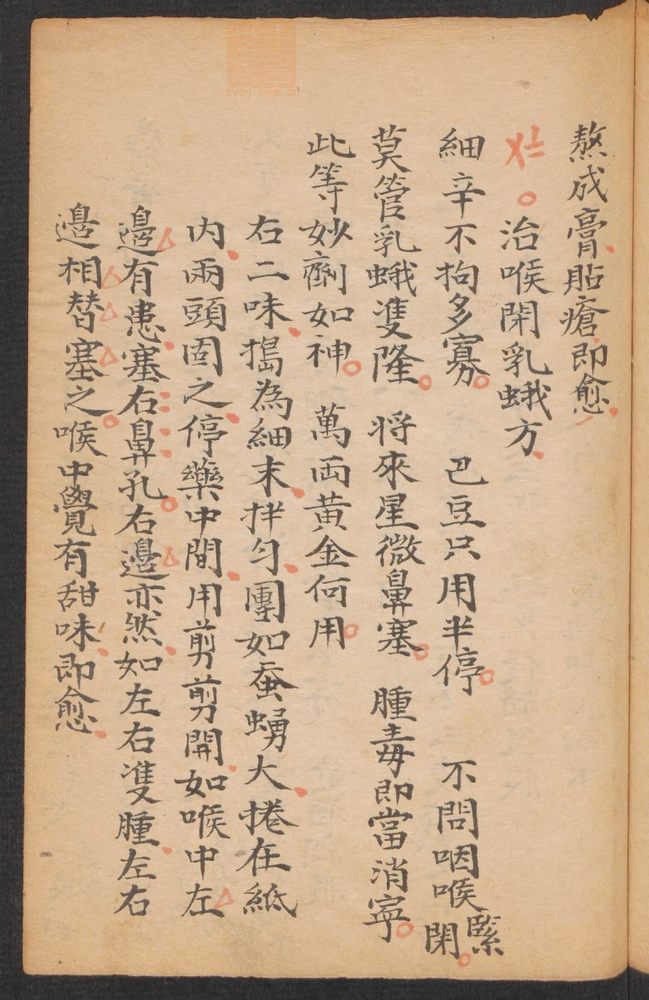 熬成膏貼瘡即愈
治喉閉乳蛾方
細辛不拘多寡 巴豆只用半停 不問咽喉緊閉
莫管乳蛾雙隆 將來星微鼻塞 腫毒即當消寧
此等妙劑如神 萬両黃金何用
右二味搗為細末拌勻團如蚕蛹大捲在紙
内兩頭固之停藥中間用剪剪開如喉中左
邊有患塞右鼻孔右邊亦然如左右雙腫左右
邊相替塞之喉中覺有甜味即愈